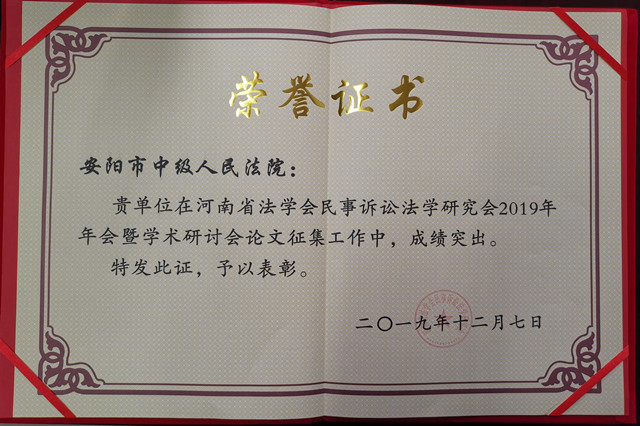 荣誉证书
安阳市中级人民法院：
贵单位在河南省法学会民事诉讼法学研究会2019年
年会暨学术研讨会论文征集工作中，成绩突出。
特发此证，予以表彰。
二〇一九年十二月七日